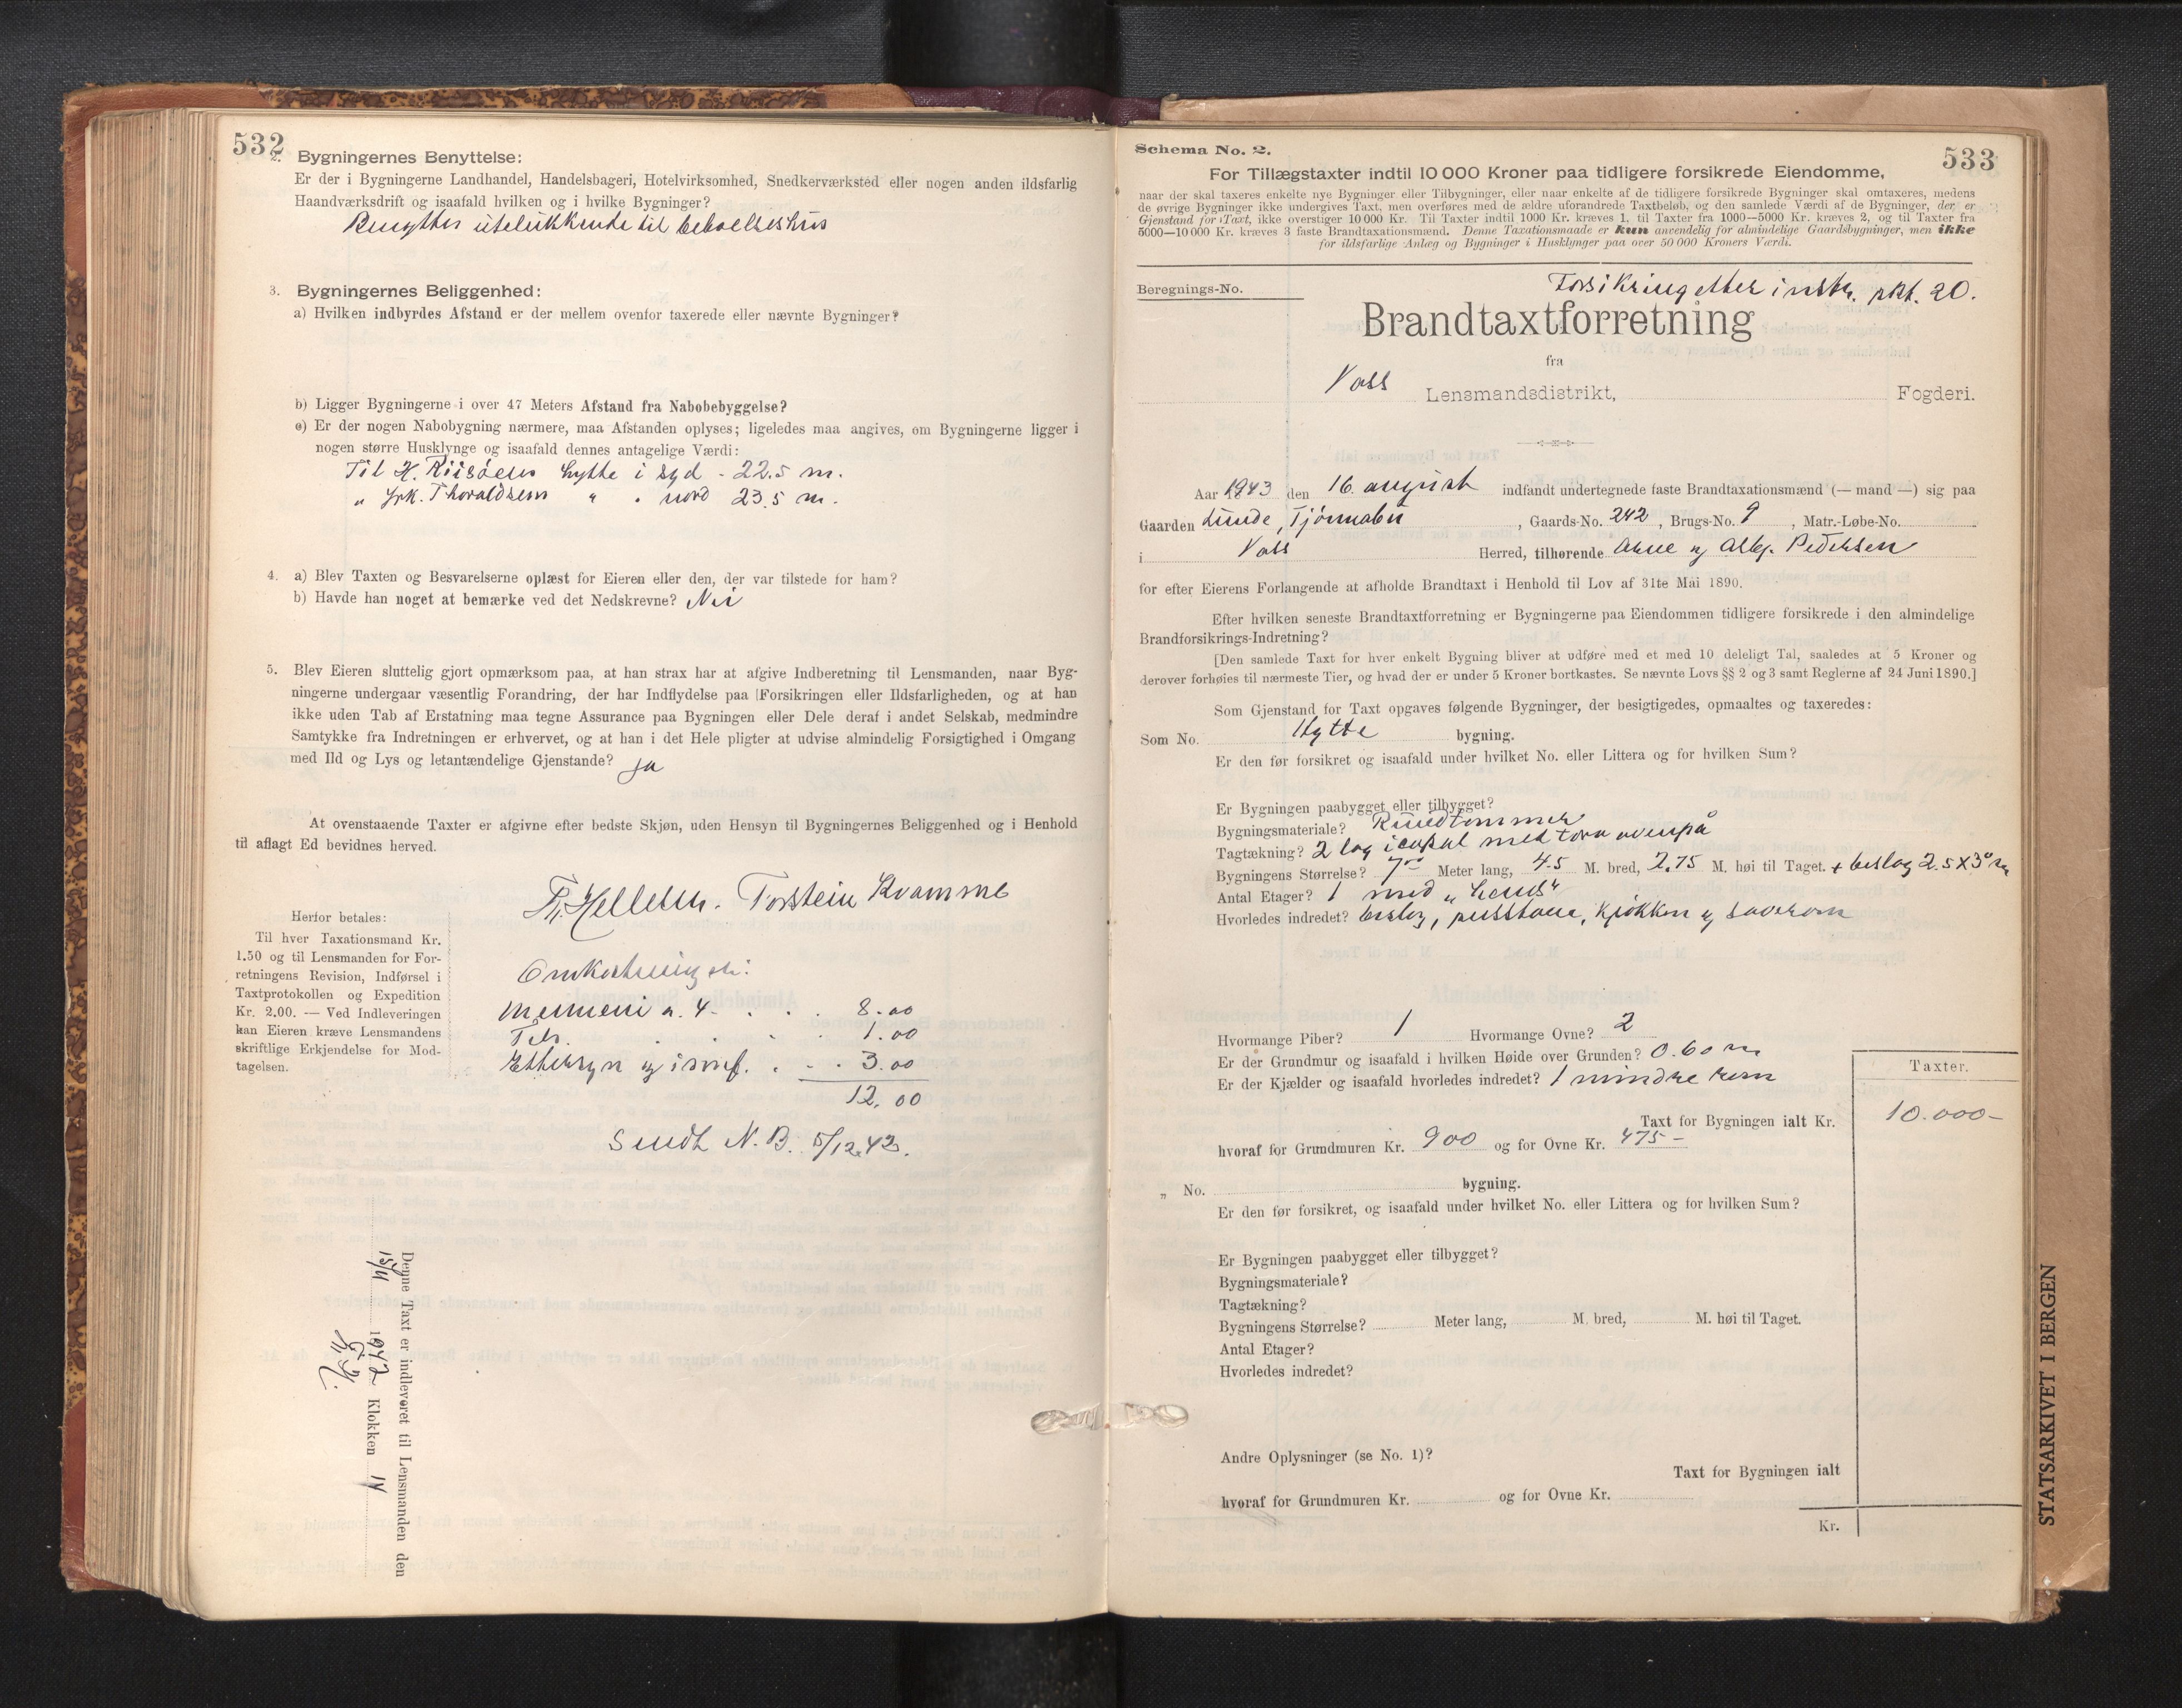 532
2. Bygningernes Benyttelse:
Er der i Bygningerne Landhandel, Handelsbageri, Hotelvirksomhed, Snedkerværksted eller nogen anden ildsfarlig
Haandværksdrift og isaafald hvilken og i hvilke Bygninger?
Benyttes utelukkende til beboelseshus
3. Bygningernes Beliggenhed:
a) Hvilken indbyrdes Afstand er der mellem ovenfor taxerede eller nævnte Bygninger?
b) Ligger Bygningerne i over 47 Meters Afstand fra Nabobebyggelse?
c) Er der nogen Nabobygning nærmere, maa Afstanden oplyses; ligeledes maa angives, om Bygningerne ligger i
nogen større Husklynge og isaafald dennes antagelige Værdi:
Til H. Riisøens hytte i syd - 22.5 m.
" Frk. Thoraldsens " " nord 23.5 m.
4. a) Blev Taxten og Besvarelserne oplæst for Eieren eller den, der var tilstede for ham?
b) Havde han noget at bemærke ved det Nedskrevne? Nei
5. Blev Eieren sluttelig gjort opmærksom paa, at han strax har at afgive Indberetning til Lensmanden, naar Byg-
ningerne undergaar væsentlig Forandring, der har Indflydelse paa Forsikringen eller Ildsfarligheden, og at han
ikke uden Tab af Erstatning maa tegne Assurance paa Bygningen eller Dele deraf i andet Selskab, medmindre
Samtykke fra Indretningen er erhvervet, og at han i det Hele pligter at udvise almindelig Forsigtighed i Omgang
med Ild og Lys og letantændelige Gjenstande? ja
At ovenstaaende Taxter er afgivne efter bedste Skjøn, uden Hensyn til Bygningernes Beliggenhed og i Henhold
til aflagt Ed bevidnes herved.
Hellesen. Torstein Kvamme
Herfor betales:
Til hver Taxationsmand Kr.
1.50 og til Lensmanden for For-
retningens Revision, Indførsel i
Taxtprotokollen og Expedition
Kr. 2.00. — Ved Indleveringen
kan Eieren kræve Lensmandens
skriftlige Erkjendelse for Mod-
tagelsen.
Omkostninger:
Mennene a. 4 - . . . 8.00
. . . 1.00
Ettersyn og innf. . . . 3.00
12.00
Sendt N.B. 5/12.42.
Denne Taxt er indleveret til Lensmanden den
15/11 1942 Klokken
533
Schema No. 2.
For Tillægstaxter indtil 10 000 Kroner paa tidligere forsikrede Eiendomme,
naar der skal taxeres enkelte nye Bygninger eller Tilbygninger, eller naar enkelte af de tidligere forsikrede Bygninger skal omtaxeres, medens
de øvrige Bygninger ikke undergives Taxt, men overføres med de ældre uforandrede Taxtbeløb, og den samlede Værdi af de Bygninger, der er
Gjenstand for Taxt, ikke overstiger 10 000 Kr. Til Taxter indtil 1000 Kr. kræves 1, til Taxter fra 1000—5000 Kr. kræves 2, og til Taxter fra
5000—10 000 Kr. kræves 3 faste Brandtaxationsmænd. Denne Taxationsmaade er kun anvendelig for almindelige Gaardsbygninger, men ikke
for ildsfarlige Anlæg og Bygninger i Husklynger paa over 50 000 Kroners Værdi.
Beregnings-No.
Forsikring etter instr. pkt. 20.
Brandtaxtforretning
fra
Voss Lensmandsdistrikt, Fogderi.
Aar 1943 den 16. august indfandt undertegnede faste Brandtaxationsmænd (— mand —) sig paa
Gaarden Lunde, Tjønnabu, Gaards-No. 242, Brugs-No. 9, Matr.-Løbe-No.
i Voss Herred, tilhørende Arne og Asbj. Pedersen
for efter Eierens Forlangende at afholde Brandtaxt i Henhold til Lov af 31te Mai 1890.
Efter hvilken seneste Brandtaxtforretning er Bygningerne paa Eiendommen tidligere forsikrede i den almindelige
Brandforsikrings-Indretning?
[Den samlede Taxt for hver enkelt Bygning bliver at udføre med et med 10 deleligt Tal, saaledes at 5 Kroner og
derover forhøies til nærmeste Tier, og hvad der er under 5 Kroner bortkastes. Se nævnte Lovs §§ 2 og 3 samt Reglerne af 24 Juni 1890.]
Som Gjenstand for Taxt opgaves følgende Bygninger, der besigtigedes, opmaaltes og taxeredes:
Som No. Hytte bygning.
Er den før forsikret og isaafald under hvilket No. eller Littera og for hvilken Sum?
Er Bygningen paabygget eller tilbygget?
Bygningsmateriale? Rundtømmer
Tagtækning? 2 lag icopal med torv ovenpå
Bygningens Størrelse? 7.00 Meter lang, 4.5 M. bred, 2.75 M. høi til Taget. + bislag 2.5 x 3.0 m
Antal Etager? 1 med "hems"
Hvorledes indredet? bislag, peisstove, kjøkken og soverom
Hvormange Piber? 1 Hvormange Ovne? 2
Er der Grundmur og isaafald i hvilken Høide over Grunden? 0.60 m
Er der Kjælder og isaafald hvorledes indredet? 1 mindre rom
Taxter.
Taxt for Bygningen ialt Kr. 10.000-
hvoraf for Grundmuren Kr. 900 og for Ovne Kr. 475-
" No. bygning.
Er den før forsikret, og isaafald under hvilket No. eller Littera og for hvilken Sum?
Er Bygningen paabygget eller tilbygget?
Bygningsmateriale?
Tagtækning?
Bygningens Størrelse? Meter lang, M. bred, M. høi til Taget.
Antal Etager?
Hvorledes indredet?
Andre Oplysninger (se No. 1)?
Taxt for Bygningen ialt
hvoraf for Grundmuren Kr. og for Ovne Kr.
Kr.
STATSARKIVET I BERGEN